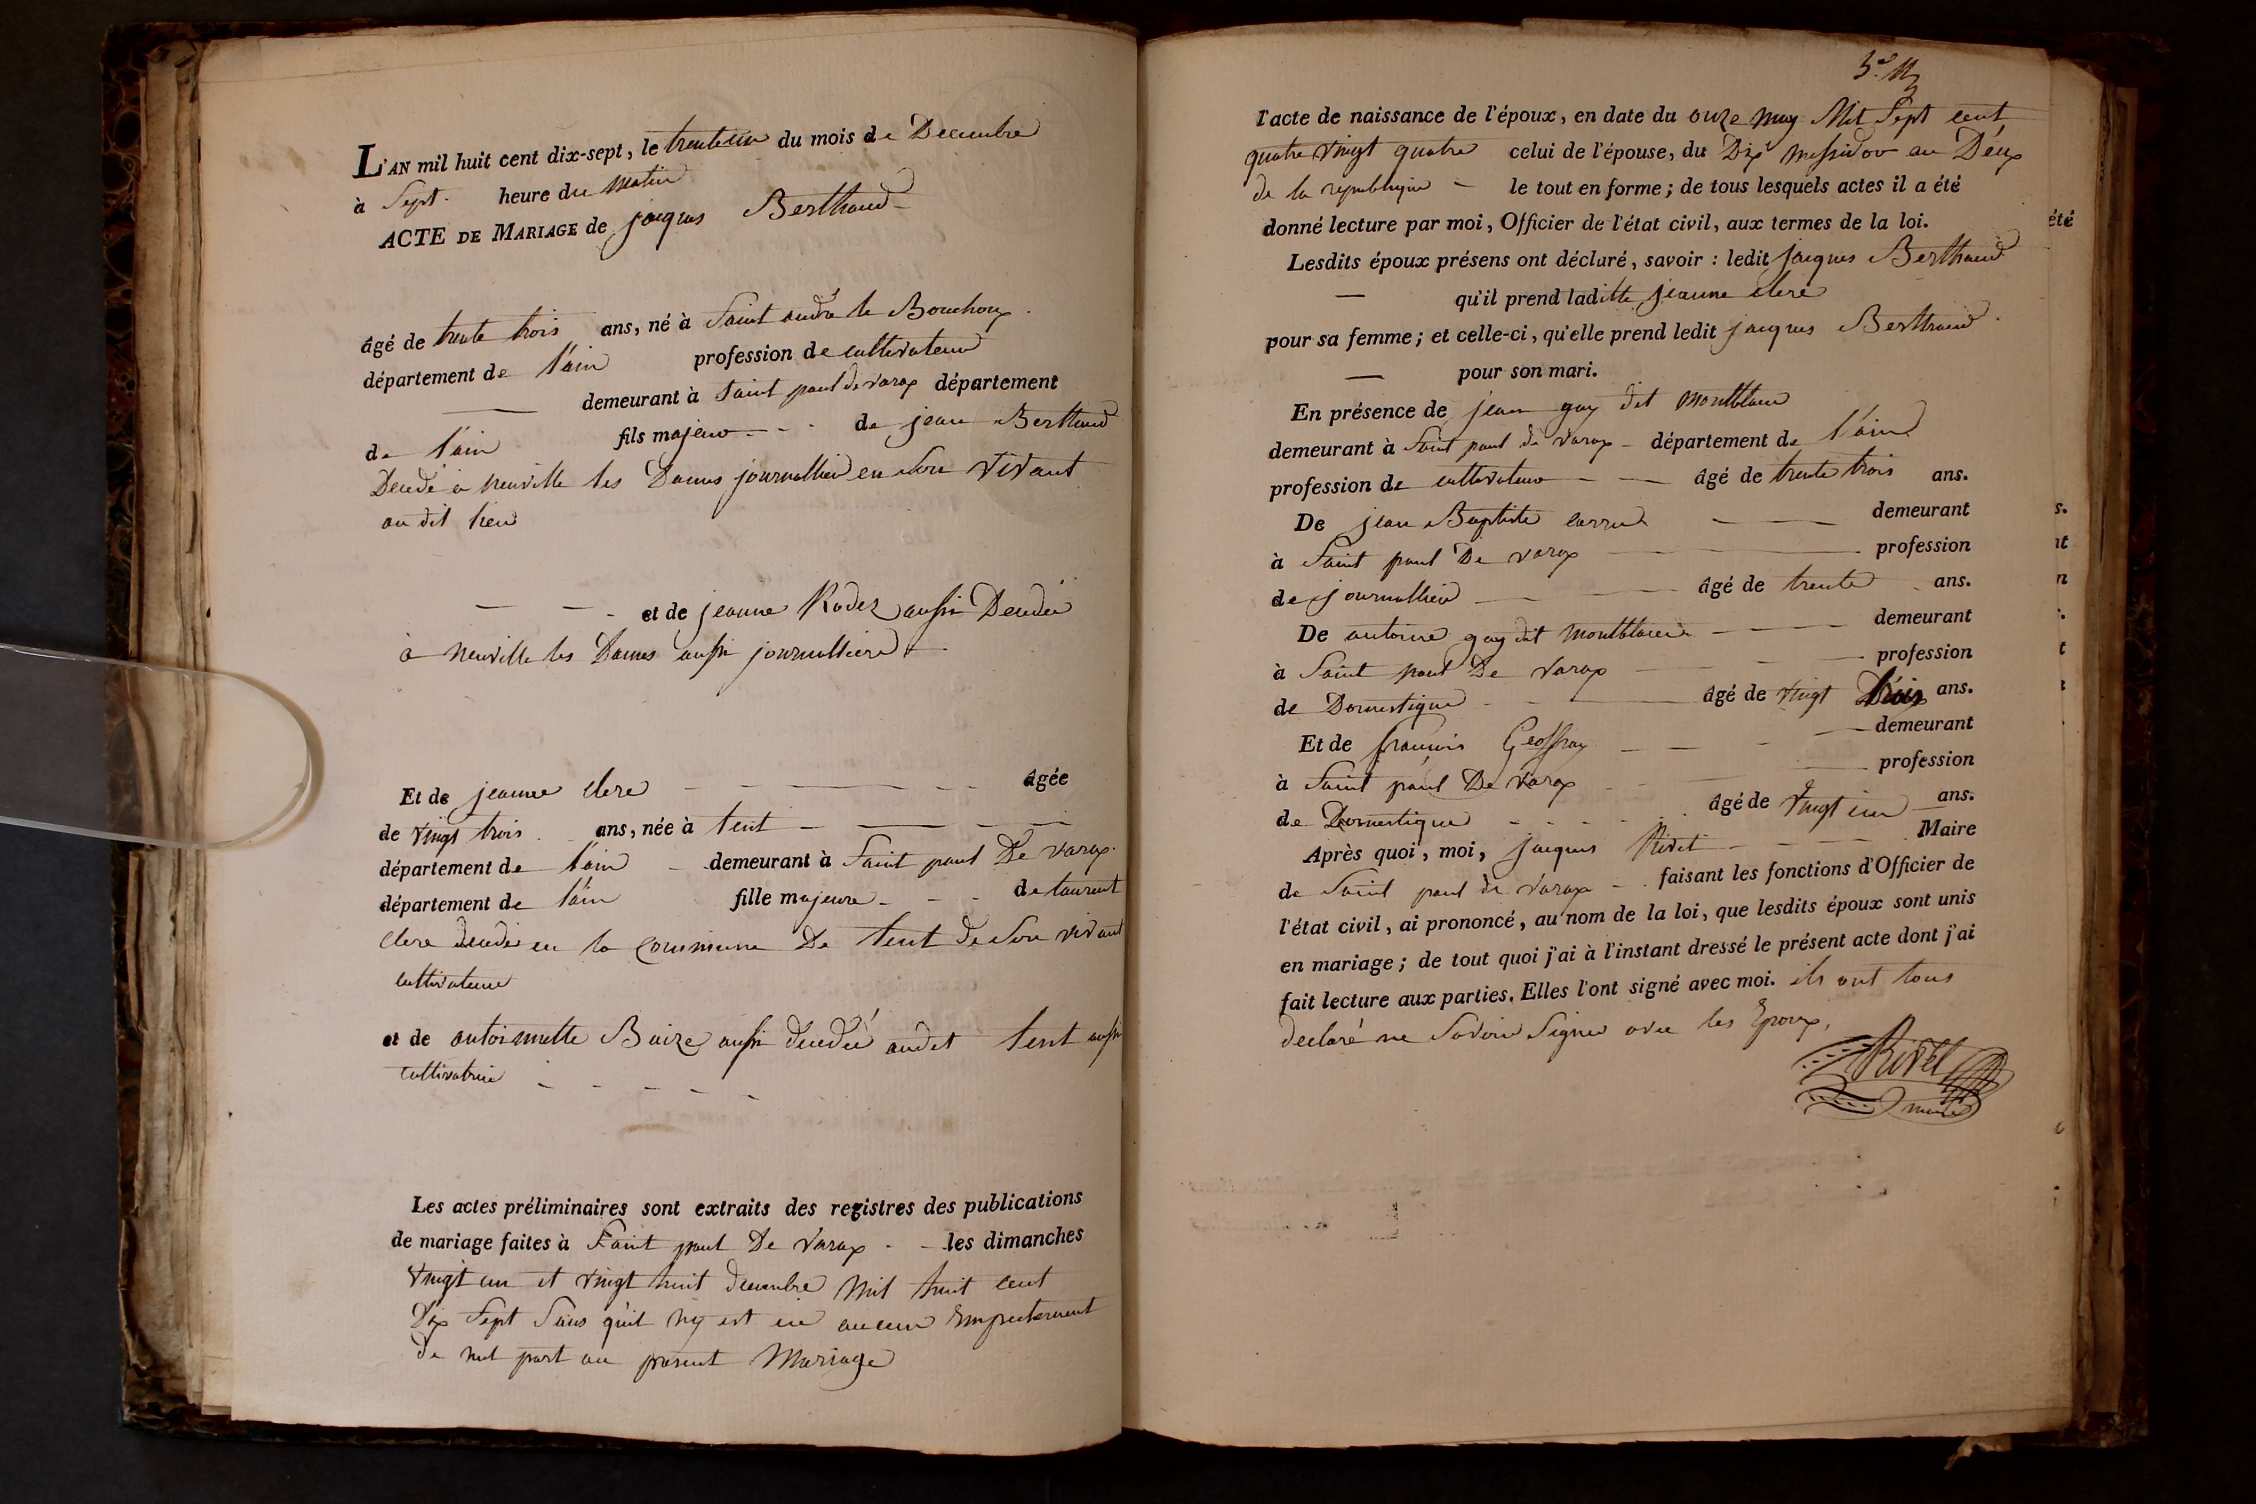 L'AN mil huit cent dix-sept, le trente un du mois de Decembre
à Sept heure du matin
ACTE DE MARIAGE de jacques Berthaud
âgé de trente trois ans, né à Saint andré le Bouchoux
département de l'ain profession de cultivateur
demeurant à Saint paul de varax département
de l'ain fils majeur de jean Berthaud
Decedé à neuville les Dames journallier en Son vivant
au dit lieu
et de jeanne Rodez aussi Decedée
à neuville les Dames aussi journalliere
Et de jeanne clere âgée
de vingt trois ans, née à tent
département de l'ain demeurant à Saint paul De varax
département de l'ain fille majeure de laurent
clere decedé en la commune De tent de Son vivant
cultivateur
et de antoinette Buize aussi decedée audit tent aussi
cultivatrice
Les actes préliminaires sont extraits des registres des publications
de mariage faites à Saint paul De varax les dimanches
vingt un et vingt huit decembre mil huit cent
Dix Sept Sans qu'il n'y est eu aucun Empectement
de nul part au present mariage
l'acte de naissance de l'époux, en date du onze may Mil Sept cent
quatre vingt quatre celui de l'épouse, du Dix messidor an Deux
de la republique le tout en forme; de tous lesquels actes il a été
donné lecture par moi, Officier de l'état civil, aux termes de la loi.
Lesdits époux présens ont déclaré, savoir : ledit jacques Berthaud
qu'il prend laditte jeanne clere
pour sa femme; et celle-ci, qu'elle prend ledit jacques Berthaud
pour son mari.
En présence de jean guy dit montblanc
demeurant à Saint paul de varax département de l'ain
profession de cultivateur âgé de trente trois ans.
De jean Baptiste demeurant
à Saint paul De varax profession
de journallier âgé de trente ans.
De antoine guy dit montblanc demeurant
à Saint paul De varax profession
de Domestique âgé de vingt trois ans.
Et de françois Geoffray demeurant
à Saint paul De varax profession
de Domestique âgé de vingt un ans.
Après quoi, moi, jacques Rivet Maire
de Saint paul de varax faisant les fonctions d'Officier de
l'état civil, ai prononcé, au nom de la loi, que lesdits époux sont unis
en mariage; de tout quoi j'ai à l'instant dressé le présent acte dont j'ai
fait lecture aux parties. Elles l'ont signé avec moi. ils ont tous
declaré ne Savoir Signer avec les Epoux.
Rivet
maire